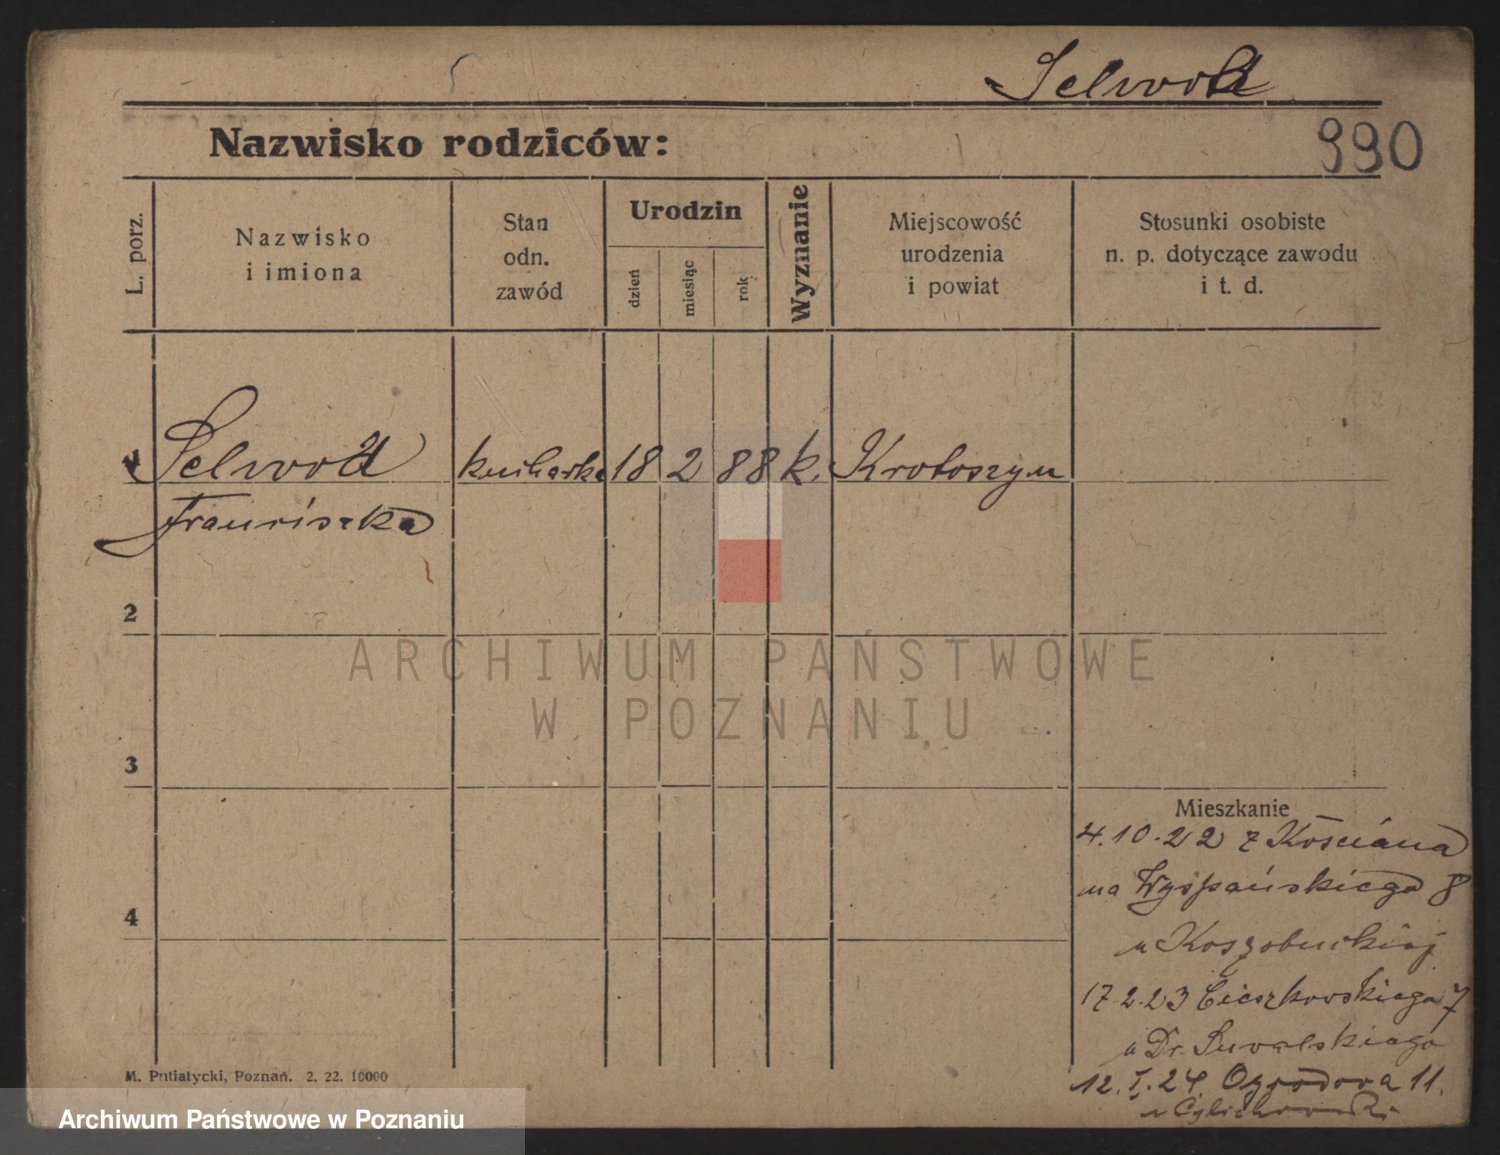 Selwat
Nazwisko rodziców:
990
L. porz.
Nazwisko
i imiona
Stan
odn.
zawód
Urodzin
dzień
miesiąc
rok
Wyznanie
Miejscowość
urodzenia
i powiat
Stosunki osobiste
n. p. dotyczące zawodu
i t. d.
1 Selwat kucharka 18 2 88 k. Krotoszyn
Franciszka
2
3
4
Mieszkanie
4.10.22 z Kościana
na Wyspańskiego 8
u
17.2.23 Cieszkowskiego 7
u Dr. Suwalskiego
12.I.24 Ogrodowa 11.
u
M. Putiatycki, Poznań. 2. 22. 10000
ARCHIWUM PAŃSTWOWE
W POZNANIU
Archiwum Państwowe w Poznaniu